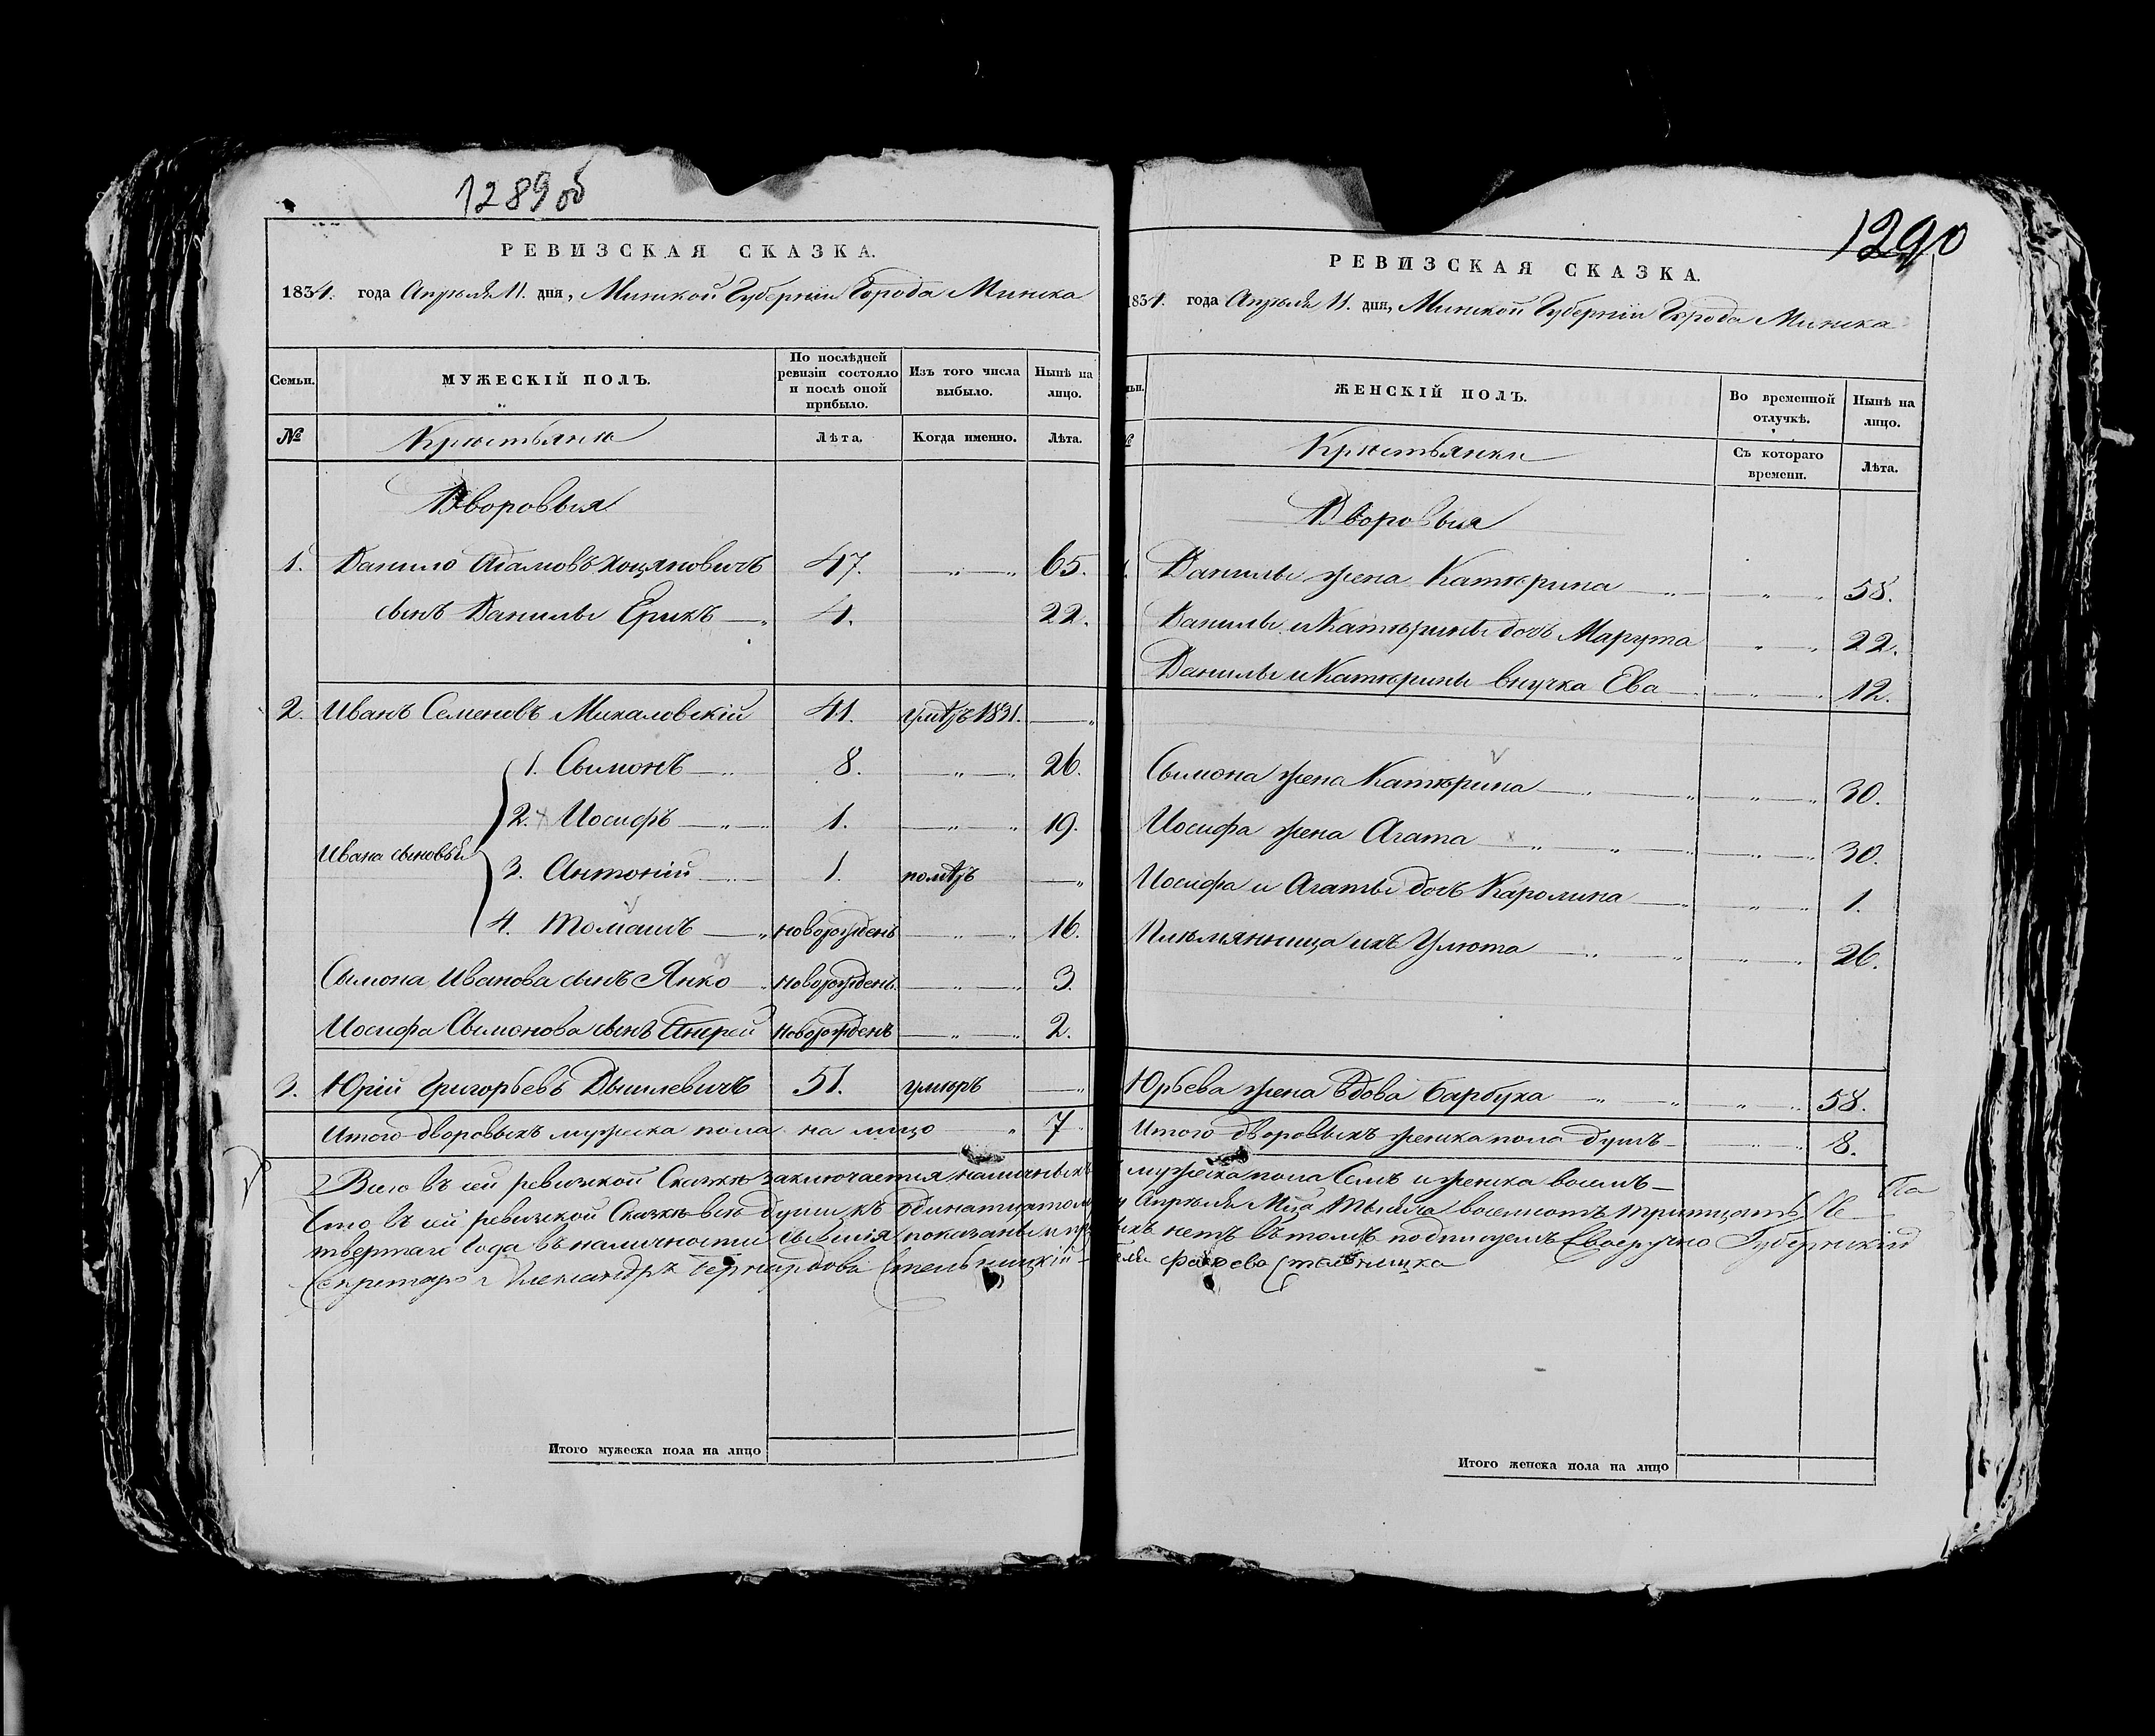 1289об
РЕВИЗСКАЯ СКАЗКА.
1834. года Апреля 11. дня, Минской Губернiи Города Минска
Семьи.
МУЖЕСКІЙ ПОЛЪ.
По послѣдней ревизіи состояло и послѣ оной прибыло.
Изъ того числа выбыло.
Нынѣ на лицо.
№
Крестьяне
Лѣта.
Когда именно.
Лѣта.
Дворовыя
1. Данило Адамовъ Хоцяновичъ 47. 65.
сынъ Данилы Ерикъ 4. 22.
2. Иванъ Семеновъ Михаловскій 41. умѣръ 1831.
1. Сымонъ 8. 26.
2. Иосифъ 1. 19.
Ивана сыновья
3. Антоній 1. помѣръ
4. Томашъ новорожденъ 16.
Сымона Иванова сынъ Янко новорожденъ 3.
Иосифа Сымонова сынъ Андрей новорожденъ 2.
3. Юрій Григорьевъ Данилевичъ 51. умеръ
Итого дворовыхъ мужеска пола на лицо 7
Всего въ сей ревизкой Сказке заключается наличныхъ
Что въ сей ревизкой Сказке все души къ одинатцатому
твертаго Года въ наличности бывшія показаны и
Секретарь Александръ Бернардова Стельницкій
Итого мужеска пола на лицо
1290
РЕВИЗСКАЯ СКАЗКА.
1834. года Апреля 11. дня, Минской Губернiи Города Минска
ЖЕНСКІЙ ПОЛЪ.
Во временной отлучкѣ.
Нынѣ на лицо.
№
Крестьянки
Съ котораго времени.
Лѣта.
Дворовыя
Данилы жена Катерина 58.
Данилы и Катерины дочь Марута 22.
Данилы и Катерины внучка Ева 12.
Сымона жена Катерина 30.
Иосифа жена Агата 30.
Иосифа и Агаты дочь Каролина 1.
Племянница ихъ Улюта 26.
Юрьева жена вдова Барбука 58.
Итого дворовыхъ женска пола душъ 8.
мужеска пола Семь и женска восемь
Апреля Мца Тысяча восемсотъ тритцать Че
ихъ нетъ въ томъ подписуемъ Своеручно Губернскій
Итого женска пола на лицо